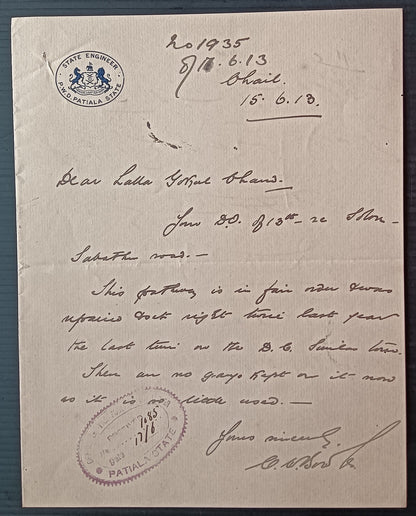 STATE ENGINEER
P.W.D. PATIALA STATE
No 1935
of 6.13
Chail.
15.6.13
Dear Lalla Gokul Chand.
Your D.O. of 13th re Solon
Sabathu road.—
This pathway is in fair order & was
repaired & set right twice last year
the last time on the D.C. Simlas tour.
There are no gangs kept on it now
as it is so little used.—
Yours sincerely,
1085
17/6
PATIALA STATE